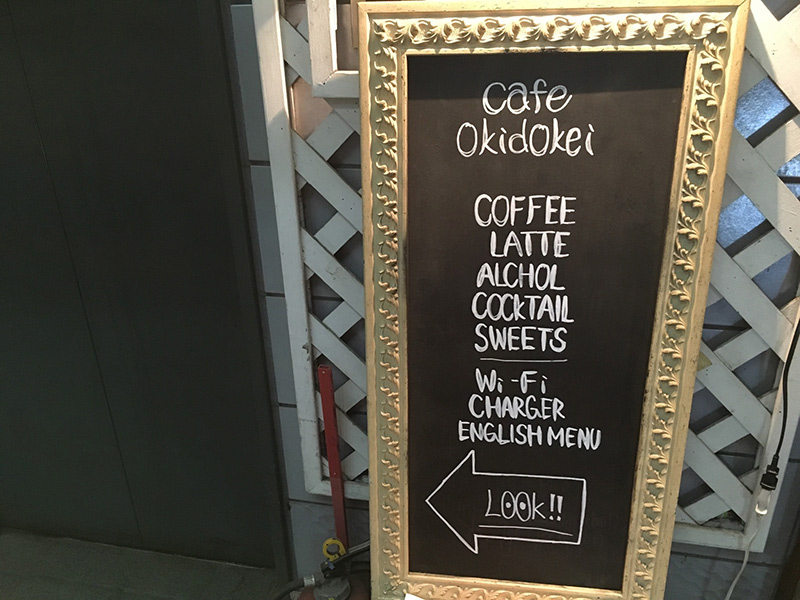 Cafe
Okidokei
COFFEE
LATTE
ALCHOL
COCKTAIL
SWEETS
Wi-Fi
CHARGER
ENGLISH MENU
LOOK!!